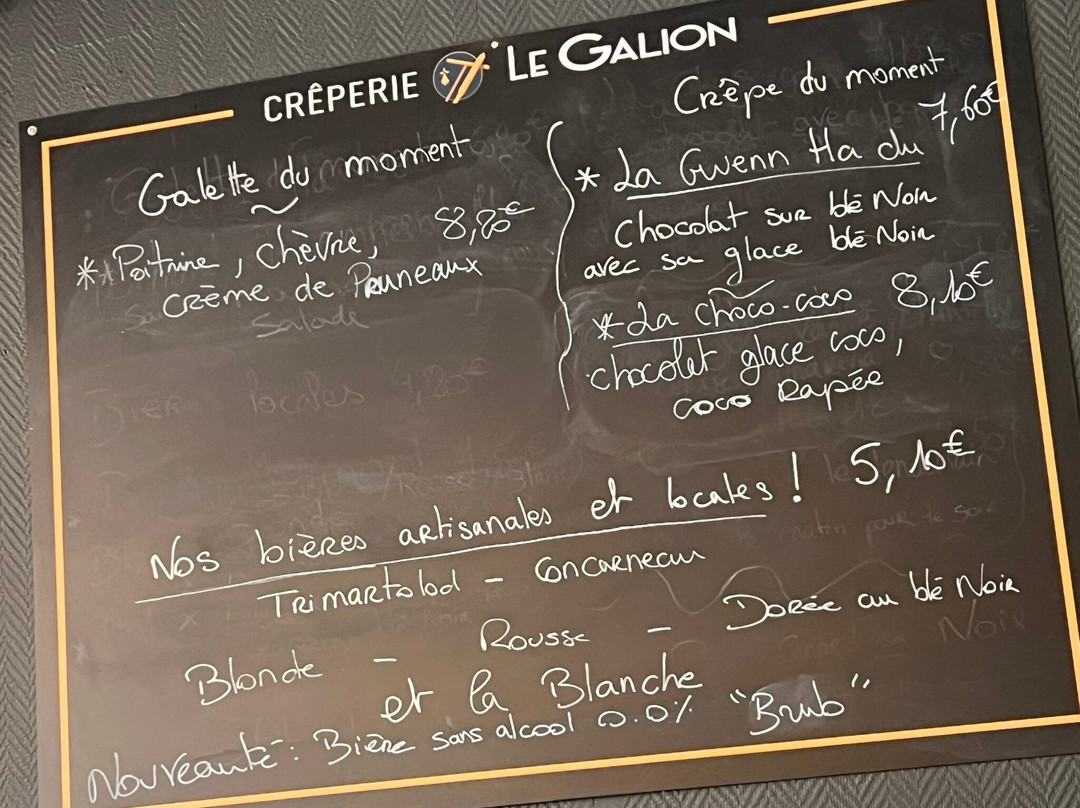 CRÊPERIE LE GALION
Galette du moment
* Poitrine, chèvre, 8,80€
crème de Pruneaux
Salade
Bières locales
Crêpe du moment
7,60€
* La Gwenn Ha du
Chocolat sur blé Noir
avec sa glace blé Noir
* La choco-coco 8,10€
chocolat glace coco,
coco Rapée
Nos bières artisanales et locales ! 5,10€
Trimartolod - Concarneau
Blonde - Rousse - Dorée au blé Noir
et la Blanche
Nouveauté : Bière sans alcool 0.0% "Brub"